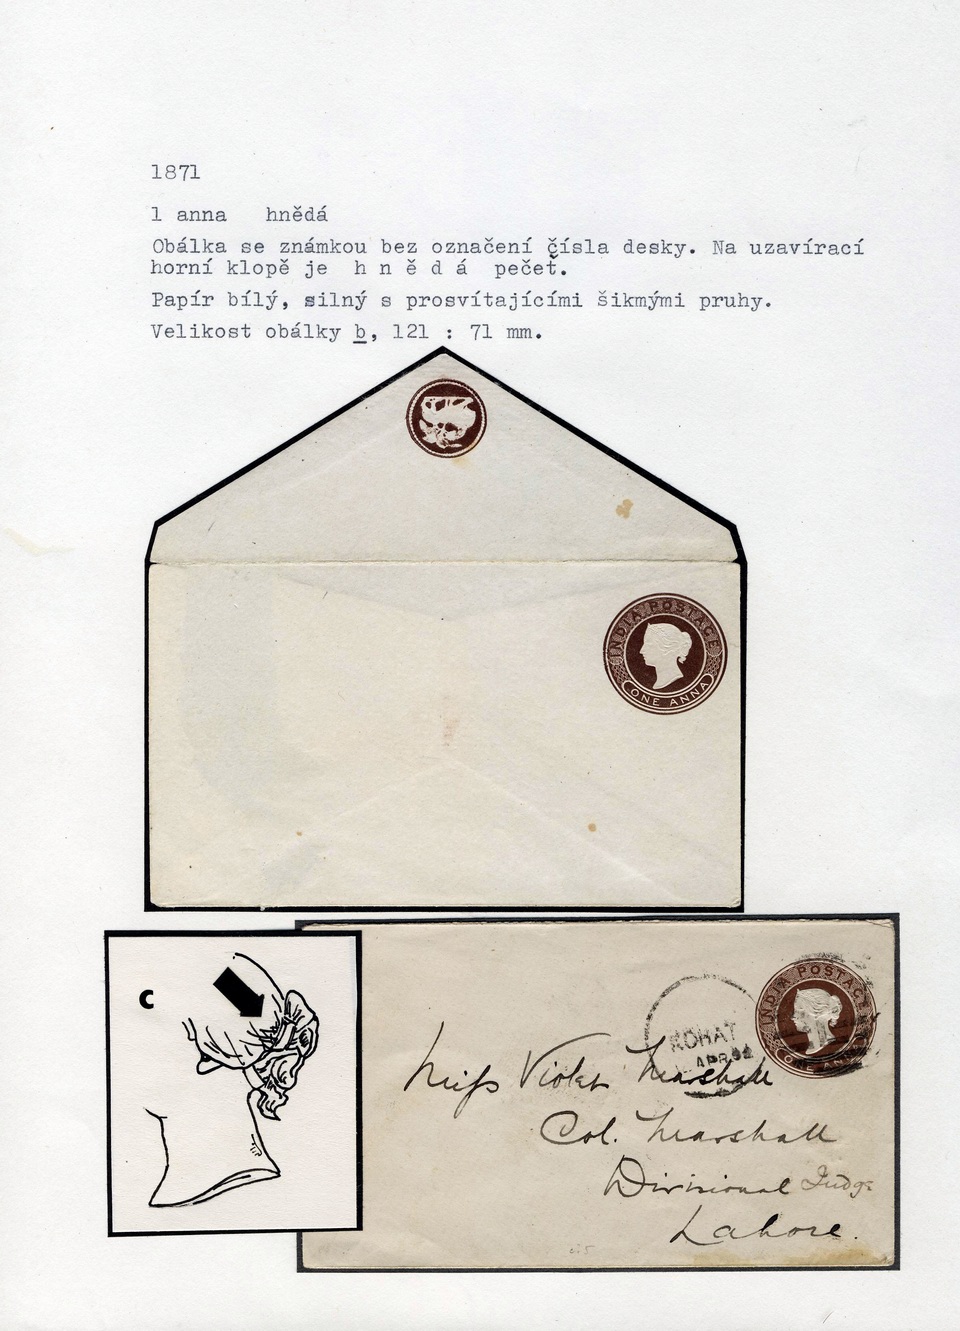 1871
1 anna hnědá
Obálka se známkou bez označení čísla desky. Na uzavírací
horní klopě je h n ě d á pečeť.
Papír bílý, silný s prosvítajícími šikmými pruhy.
Velikost obálky b, 121 : 71 mm.
INDIA POSTAGE
ONE ANNA
C
INDIA POSTAGE
ONE ANNA
KOHAT
APR
Miss Violet Marshall
Col. Marshall
Divisional Judge
Lahore.